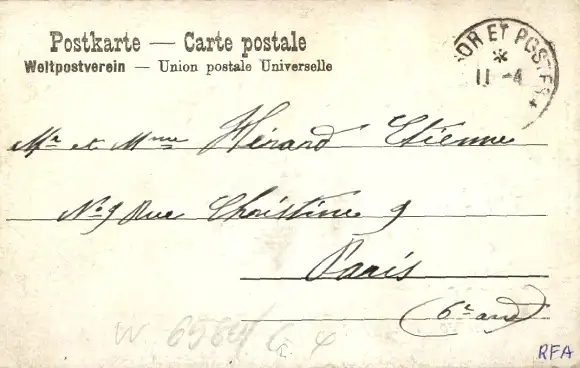 Postkarte — Carte postale
Weltpostverein — Union postale Universelle
OR ET POSTES
*
11 -4
*
Mr et Mme Hérard Etienne
No 9 Rue Christine 9
Paris
(6e arr)
W 6584
RFA